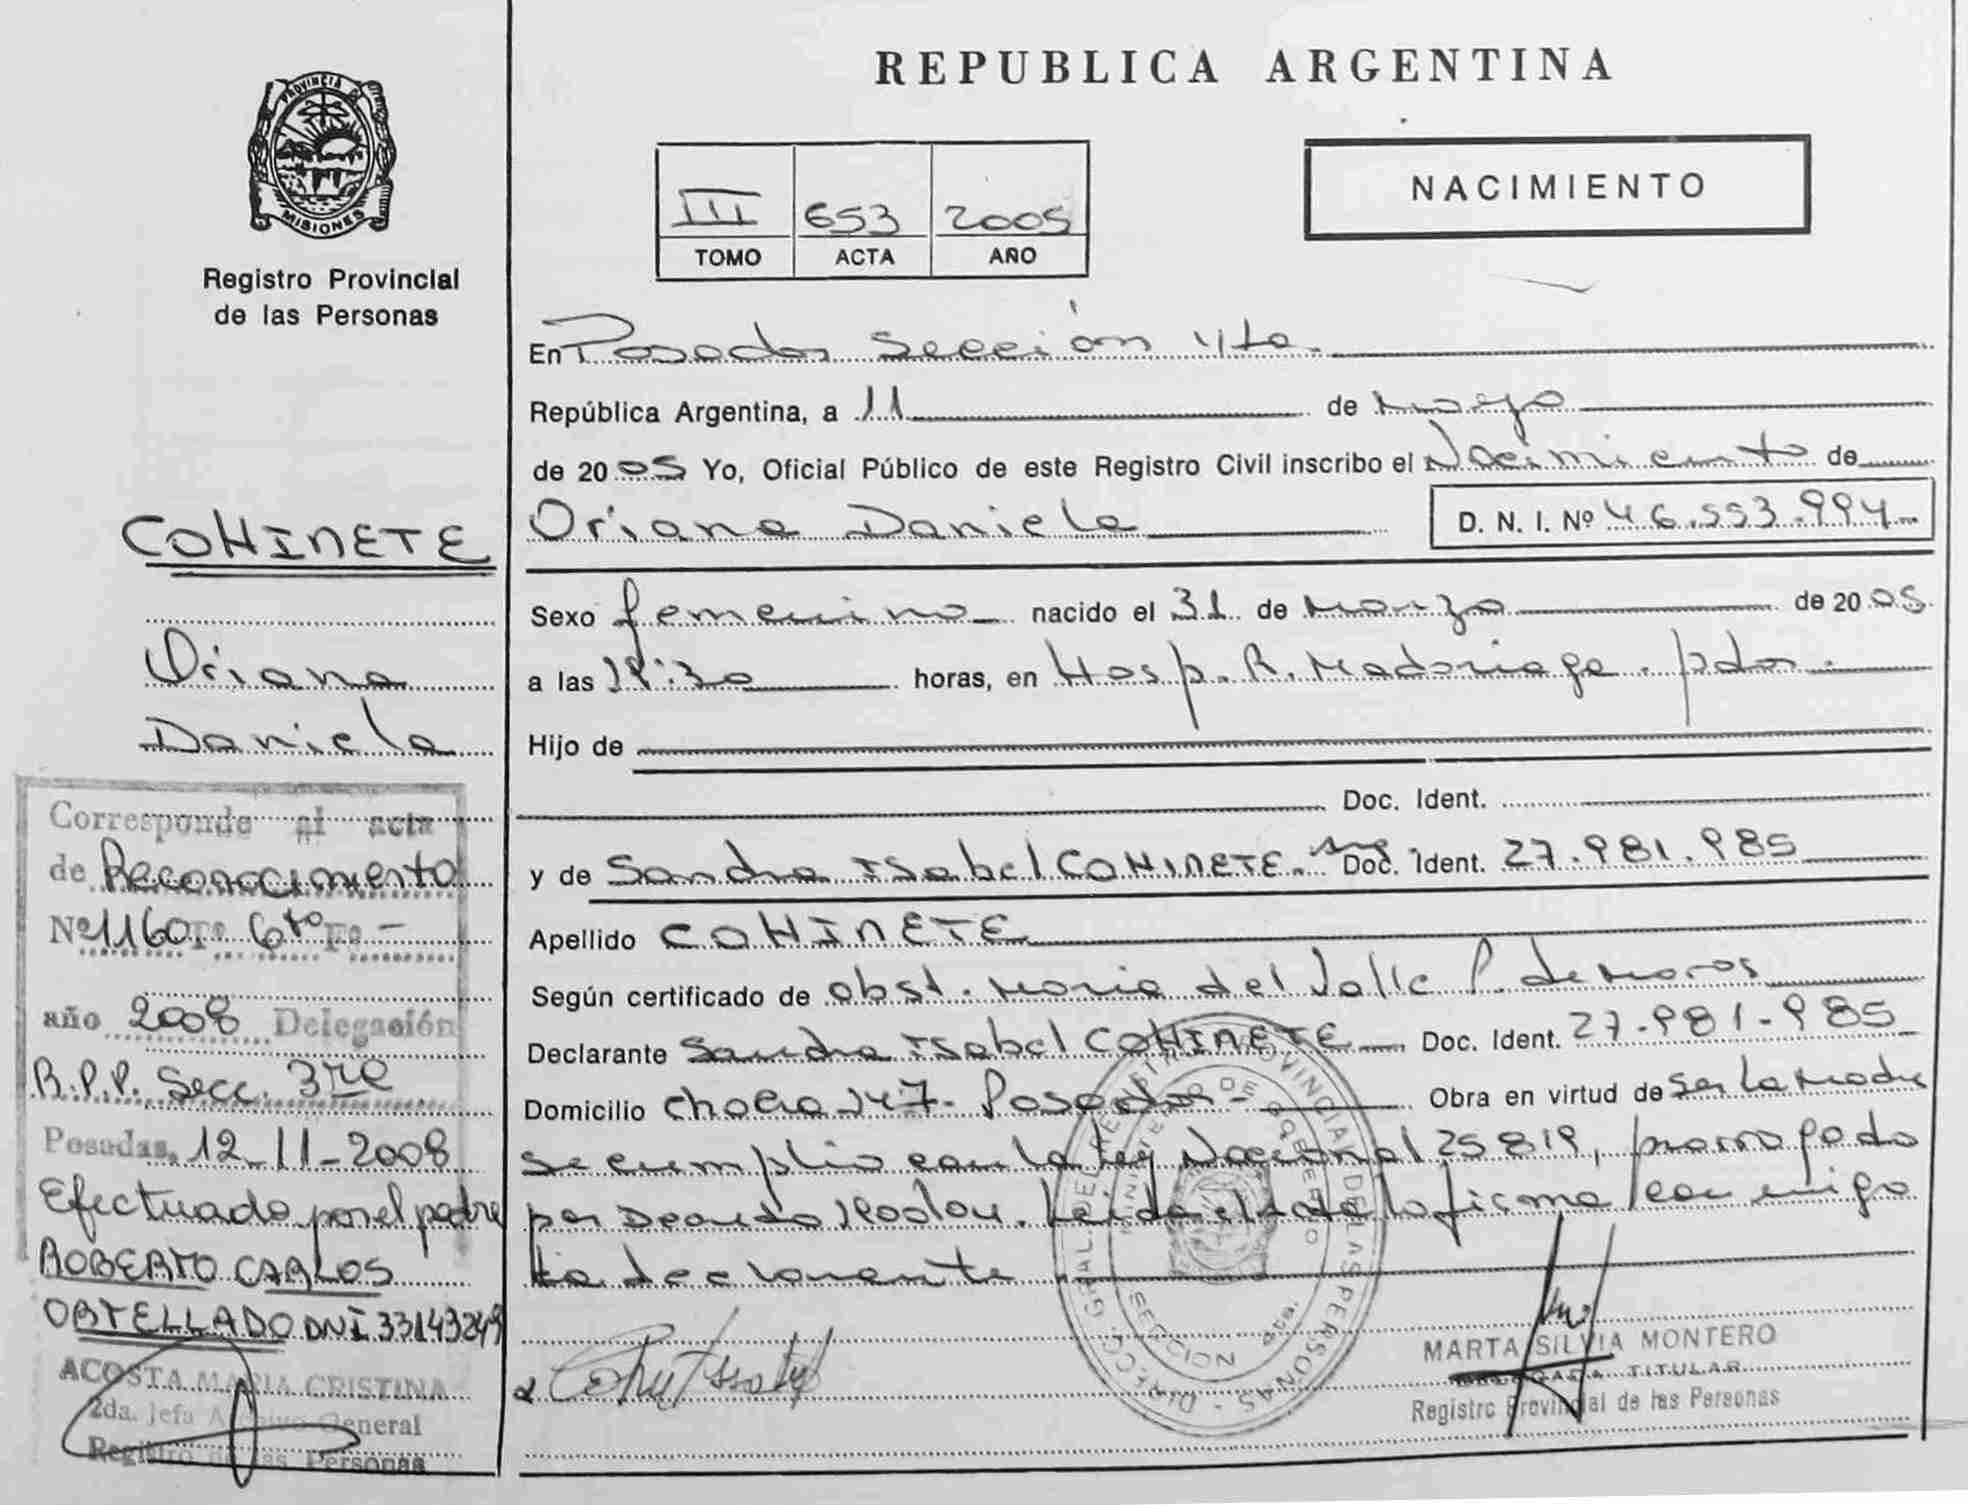 PROVINCIA DE
MISIONES
Registro Provincial
de las Personas
COHINETE
Oriana
Daniela
Corresponde al acta
de Reconocimiento
Nº 1160 Tº 6to Fº -
año 2008 Delegación
R.P.P. Secc. 3ra
Posadas, 12-11-2008
Efectuado por el padre
ROBERTO CARLOS
ORTELLADO DNI 33143249
ACOSTA MARIA CRISTINA
2da. Jefa Archivo General
Registro de las Personas
REPUBLICA ARGENTINA
III 653 2005
TOMO ACTA AÑO
NACIMIENTO
En Posadas Sección 4ta.
República Argentina, a 11 de Mayo
de 2005 Yo, Oficial Público de este Registro Civil inscribo el Nacimiento de
Oriana Daniela D. N. I. Nº 46.553.994
Sexo femenino nacido el 31 de Marzo de 2005
a las horas, en Hosp. R. Madariaga. pdas.
Hijo de
Doc. Ident.
y de Sandra Isabel COHINETE. Arg. Doc. Ident. 27.981.985
Apellido COHINETE
Según certificado de obst. Maria del Valle P. de Moros
Declarante Sandra Isabel COHINETE Doc. Ident. 27.981.985
Domicilio 147. Posadas Obra en virtud de ser la Madre
se cumplio con la Ley Nacional 25819, prorrogado
por Decreto Leida el acta la firma conmigo
la declarante
DIRECC. GRAL. DEL REGISTRO PROVINCIAL DE LAS PERSONAS
MINISTERIO DE GOBIERNO
SECCION 4ta.
MARTA SILVIA MONTERO
DELEGADA TITULAR
Registro Provincial de las Personas